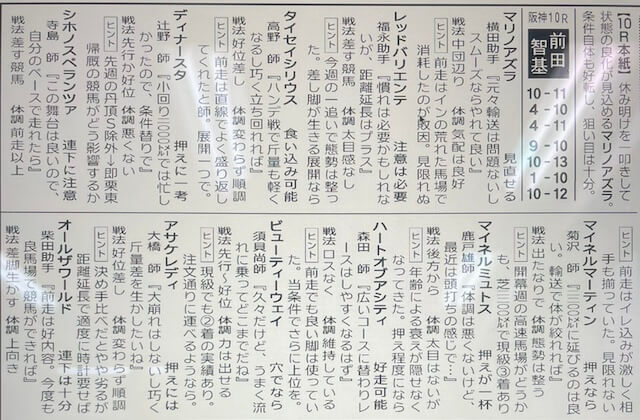 【10R本紙】休み明けを一叩きして
状態の良化が見込めるマリノアズラ。
条件自体も好転し、狙い目は十分。
阪神10R
前田智基
10-11
4-10
4-11
9-10
10-13
1-10
10-12
マリノアズラ 見直せる
横田助手『元々輸送は問題ないし
スムーズならやれて良い』
戦法中団辺り 体調気配は良好
ヒント 前走はインの荒れた馬場で
消耗したのが敗因。見限れぬ
レッドバリエンテ 注意は必要
福永助手『慣れは必要かもしれな
いが、距離延長はプラス』
戦法差す競馬 体調太目感なし
ヒント 今週の一追いで態勢は整っ
た。差し脚が生きる展開なら
タイセイシリウス 食い込み可能
高野 師『ハンデ戦で斤量も軽く
なるし巧く立ち回れれば』
戦法好位差し 体調変わらず順調
ヒント 前走は直線でよく盛り返し
てくれたと師。展開一つで。
ディナースタ 押えに一考
辻野 師『小回り二〇〇〇㍍では忙し
かったので、条件替りで』
戦法先行か好位 体調悪くない
ヒント 先週の丹頂Sを除外→即栗東
帰厩の競馬がどう影響するか
シホノスペランツァ 連下に注意
寺島 師『この舞台は良いので、
自分のペースで走れたら』
戦法差す競馬 体調前走以上
ヒント 前走はペースが激しく、相
手も揃っていた。見限れない
マイネルマーティン 押えなら
菊沢 師『二〇〇〇㍍に延びるのは良
い。輸送で体が絞れれば』
戦法出たなりで 体調態勢は整う
ヒント 開幕週の高速馬場がどうか
も、芝二〇〇〇㍍で現級③着あり
マイネルミュトス 押えが一杯
鹿戸雄師『体調は悪くないけど、
最近は頭打ちの感じで…』
戦法後方から 体調太目はないが
ヒント 年齢による衰えが隠せなく
なってきた。押え程度になる
ハートオブアシティ 好走可能
森田 師『広いコースに替わりレ
ースはしやすくなるはず』
戦法ロスなく 体調維持している
ヒント 前走でも良い脚は使ってい
た。当条件でさらに上位を。
ビューティーウェイ 穴でなら
須貝尚師『久々だけど、うまく流
れに乗ってどこまでだね』
戦法先行く好位 体調力は出せる
ヒント 現級でも②着の実績あり。
注文通りに運べるようなら。
アサケレディ 押えには
大橋 師『大崩れはしないし巧く
斤量差を生かしたいね』
戦法好位差し 体調変わらず順調
ヒント 決め手比べだとやや劣るが
距離延長で適度に時計要せば
オールザワールド 連下は十分
柴田助手『前走は好内容。今度も
良馬場で競馬ができれば』
戦法差脚生かす 体調上向き